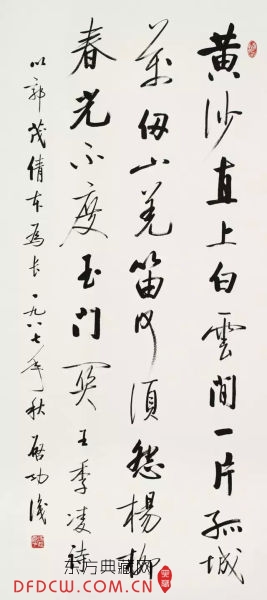 黄沙直上白雲間一片孤城
萬仞山羌笛何須怨楊柳
春光不度玉门関王季凌詩
以郭茂倩本為長一九八七年秋启功識
东方典藏网
DFDCW.COM.CN